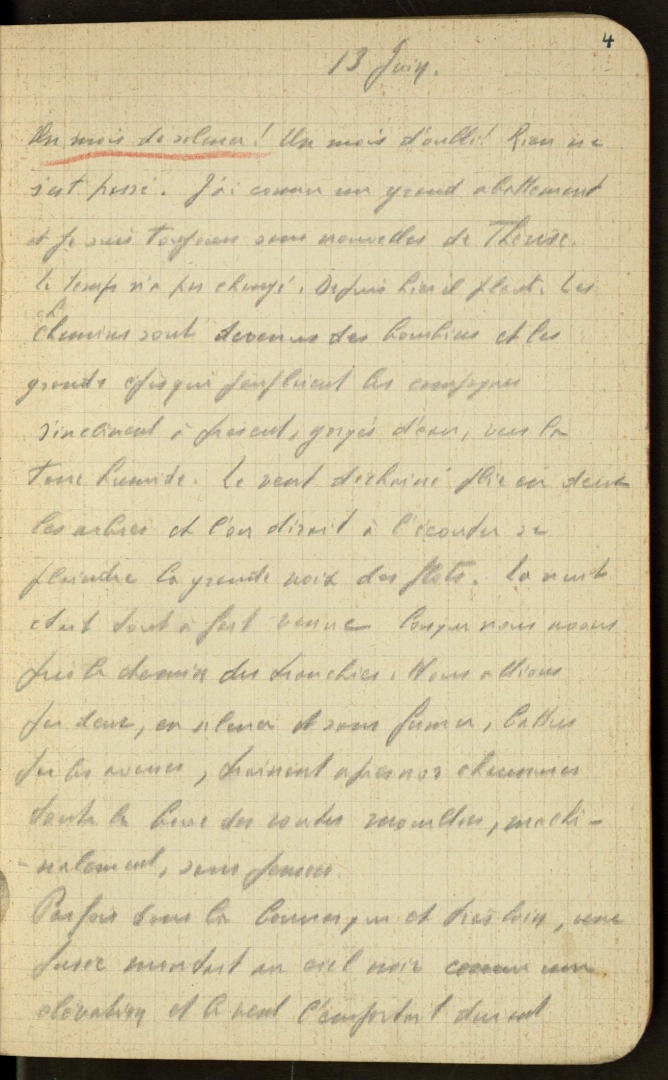 4
13 Juin.
Un mois de silence! Un mois d'oubli! Rien ne
s'est passé. J'ai connu un grand abattement
et je suis toujours sans nouvelles de Thérèse.
le temps n'a pas changé. Depuis hier il pleut. Les
chemins sont devenus des bourbiers et les
grands épis qui peuplaient les campagnes
s'inclinent à présent, gorgés d'eau, vers la
terre humide. Le vent déchaîné plie en deux
les arbres et l'on dirait à l'écouter se
plaindre la grande voix des flots. La nuit
était tout à fait venue lorsque nous avons
pris le chemin des tranchées. Nous allions
par deux, en silence et sans fumer, battus
par les averses, traînant après nos chaussures
toute la boue des routes mouillées, machi-
nalement, sans penser.
Parfois dans la bourrasque et très loin, une
fusée montait au ciel noir comme une
élévation et le vent l'emportait durant